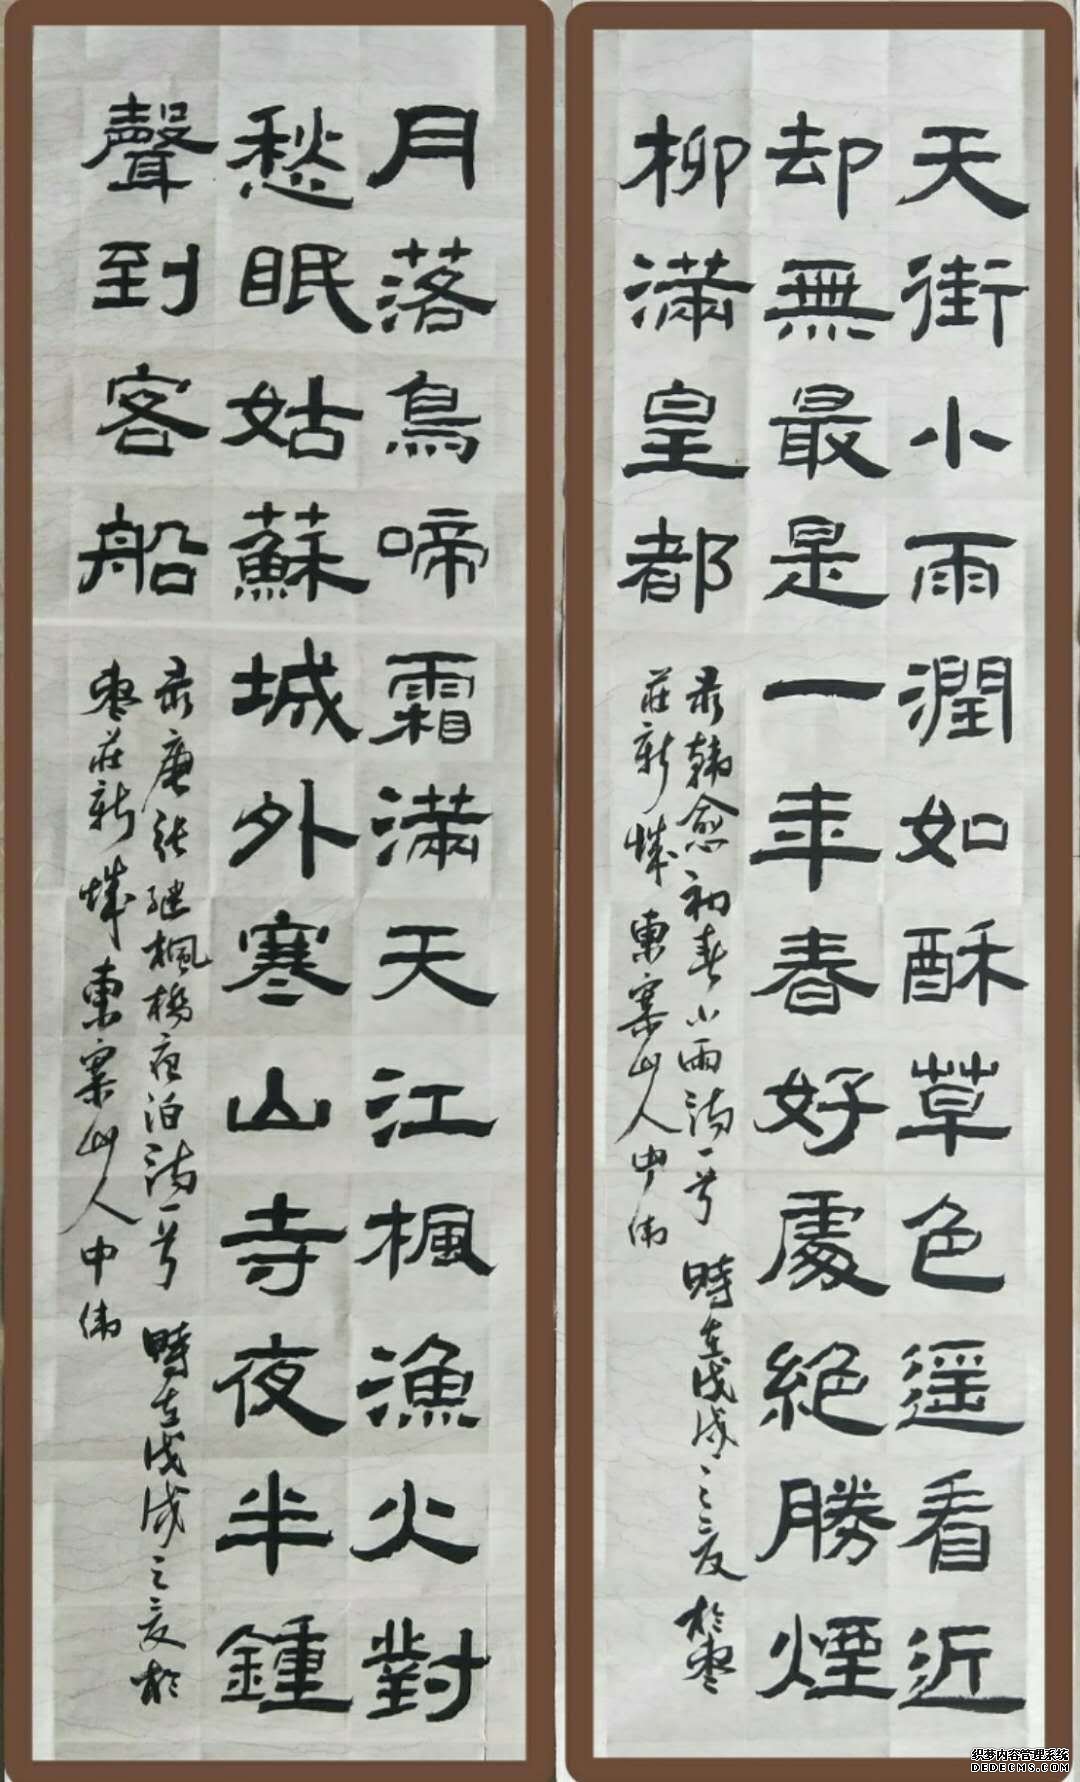 天街小雨潤如酥草色遥看近
却無最是一年春好處絶勝煙
柳滿皇都
录韩愈初春小雨詩一首 時在戊戌之夏 於枣
莊新城東寨山人中偉
月落鳥啼霜滿天江楓漁火對
愁眠姑蘇城外寒山寺夜半鍾
聲到客船
录唐张继楓橋夜泊詩一首 時在戊戌之夏於
枣莊新城東寨山人中偉
织梦内容管理系统
DEDECMS.COM